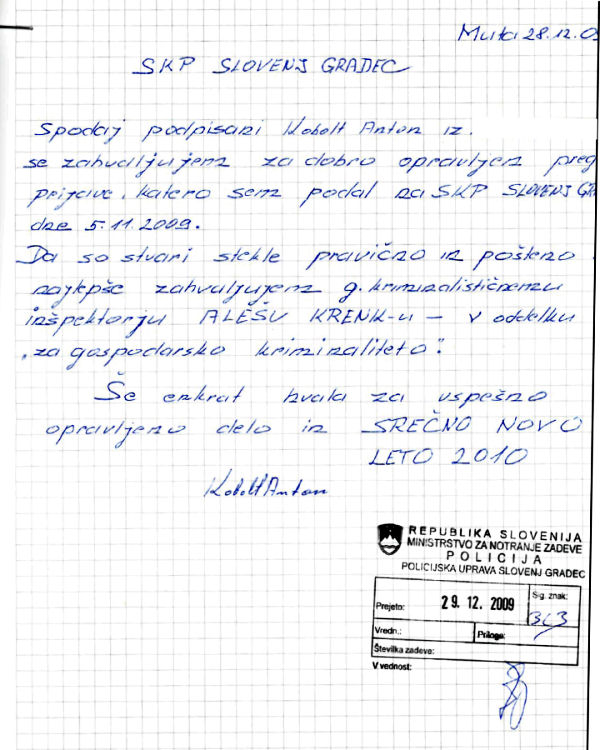 Muta 28.12.09
SKP SLOVENJ GRADEC
Spodaj podpisani Kobolt Anton iz.
se zahvaljujem za dobro opravljen preg
prijave, katero sem podal na SKP SLOVENJ GRA
dne 5.11.2009.
Da so stvari stekle pravično in pošteno
najlepše zahvaljujem g. kriminalističnemu
inšpektorju ALEŠU KRENK-u - v oddelku
„za gospodarsko kriminaliteto".
Še enkrat hvala za uspešno
opravljeno delo in SREČNO NOVO
LETO 2010
Kobolt Anton
REPUBLIKA SLOVENIJA
MINISTRSTVO ZA NOTRANJE ZADEVE
POLICIJA
POLICIJSKA UPRAVA SLOVENJ GRADEC
Prejeto: 29. 12. 2009 Sig. znak:
Vredn.: Priloge:
Številka zadeve:
V vednost: